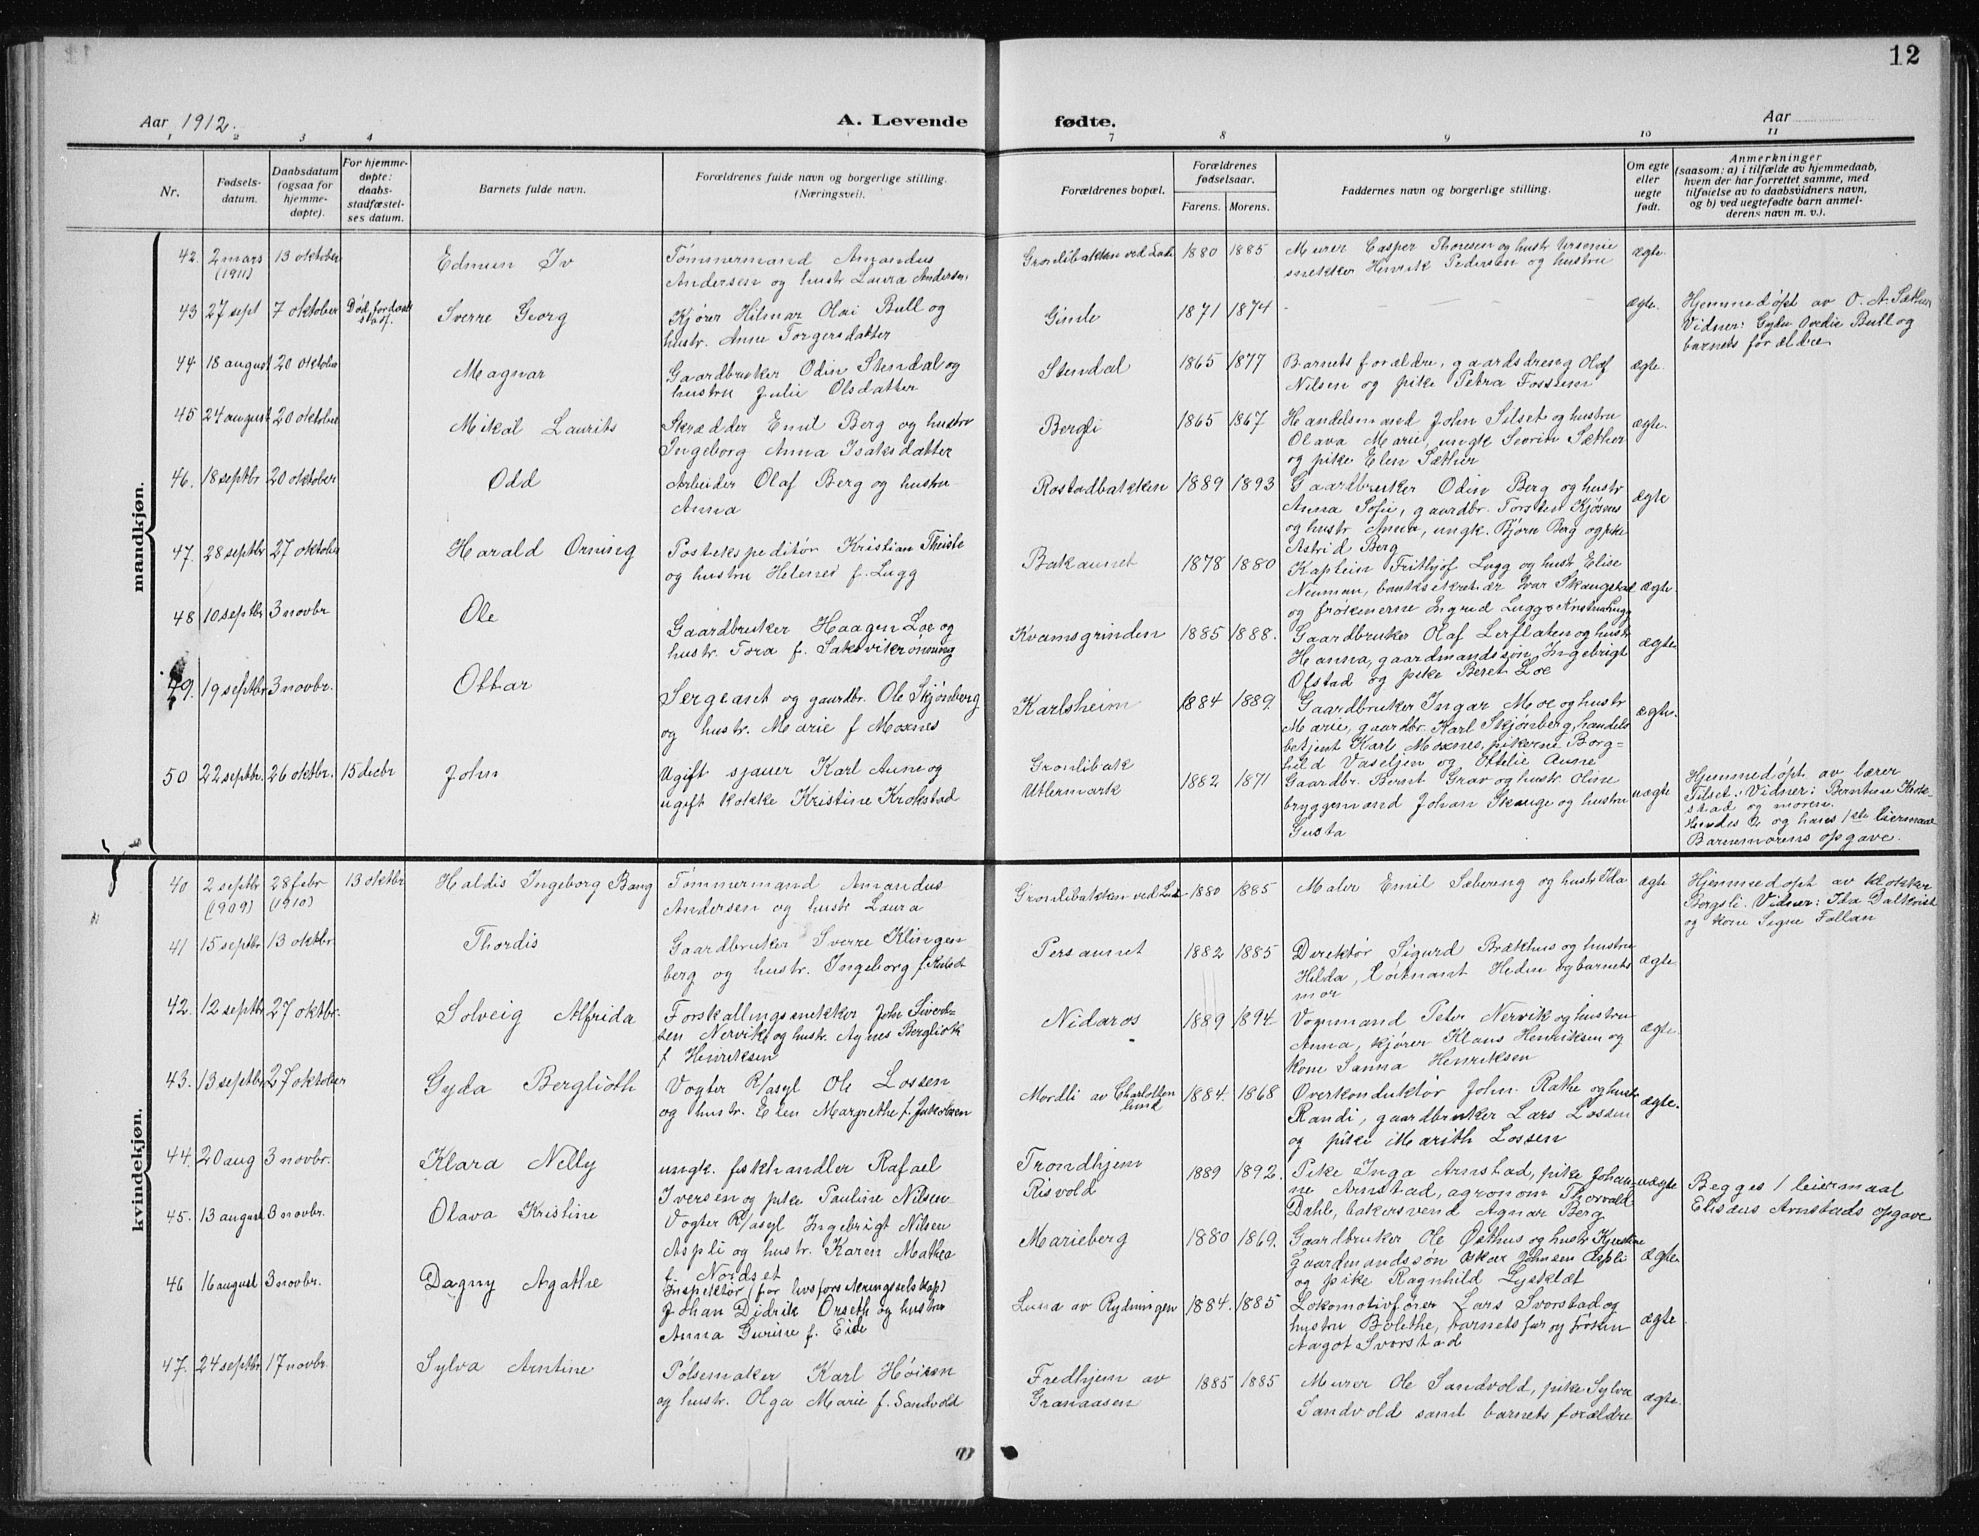 12
Aar 1912.
A. Levende fødte.
Aar
1 2 3 4 7 8 9 10 11
Nr.
Fødsels-
datum.
Daabsdatum
(ogsaa for
hjemme-
døpte).
For hjemme-
døpte:
daabs-
stadfæstel-
ses datum.
Barnets fulde navn.
Forældrenes fulde navn og borgerlige stilling.
(Næringsvei).
Forældrenes bopæl.
Forældrenes
fødselsaar.
Farens. Morens.
Faddernes navn og borgerlige stilling.
Om egte
eller
uegte
født.
Anmerkninger
(saasom: a) i tilfælde av hjemmedaab,
hvem der har forrettet samme, med
tilføielse av to daabsvidners navn,
og b) ved uegtefødte barn anmel-
derens navn m. v.).
mandkjøn.
42. 2 mars 13 oktober Edmun Iv Tømmermand Amandus Grønlibakken ved Lade 1880 1885 Murer Casper Thoresen og hustr ægte.
(1911) Andersen og hustr Laura Andersen snekker Henrik Pedersen og hustru
43 27 sept 7 oktober Død før daabs Sverre Georg Kjører Hilmar Olai Bull og Gimle 1871 1874 ægte. Hjemmedøpt av O. A. Sæther
stadf. hustr. Anne Torgersdatter Vidner: Gyda Ovedie Bull og
barnets forældre
44 18 august 20 oktober Magnar Gaardbruker Odin Stendal og Stendal 1865 1877 Barnets forældre, gaardsdreng Olof ægte.
hustru Julie Olsdatter Nilsen og pike Petra Fossum
45 24 august 20 oktober Mikal Laurits Skrædder Emil Berg og hustru Bergli 1865 1867 Handelsmand John Silset og hustru ægte.
Ingeborg Anna Isaksdatter Olava Marie, ungk Sevrin Sæther
og pike Elen Sæther
46. 18 septbr 20 oktober Odd Arbeider Olaf Berg og hustru Rostadbakken 1889 1893 Gaardbruker Odin Berg og hustr ægte
Anna Anna Sofie, gaardbr. Torsten Kjøsnes
og hustr Anna, ungk. Bjørn Berg og pike
Astrid Berg
47. 28 septbr 27 oktober Harald Orning Postekspeditør Kristian Theisle Bakaunet 1878 1880 Kaptein Frithjof Lugg og hustr Elise ægte.
og hustru Helene f. Lugg Neuman, banksekretær Ivar Skaugstad
og frøkenerne Ingrid Lugg og Kristian Lugg
48 10 septbr 3 novbr Ole Gaardbruker Haagen Loe og Kvamsgrinden 1885 1888. Gaardbruker Olaf Lerflaten og hustr ægte
hustr. Tora f. Saksvikrønning Hanna, gaardmandssøn Ingebrigt
Ofstad og pike Beret Loe
49. 19 septbr 3 novbr. Ottar Sergeant og gaardbr. Ole Skjønberg Karlsheim 1884 1889. Gaardbruker Ingar Moe og hustr ægte.
og hustr. Marie f Moxnes Marie, gaardbr. Karl Skjønberg, handels
betjent Karl Moxnes, pikerne Borg=
hild Vaseljen og Otelie Aune
50 22 septbr. 26 oktbr. 15 decbr John Ugift sjauer Karl Aune og Grønlibak 1882 1871 Gaardbr. Bernt Grav og hustr Oline uægte Hjemmedøpt av lærer
ugift kokke Kristine Krokstad Utlermark bryggemand Johan Skauge og hustru Tilset. Vidner: Berntine Krok-
Gusta stad og moren.
Hendes 2 og hans 1ste leiermaal
Barnemorens opgave.
kvindekjøn.
40 2 septbr 28 febr 13 oktbr Haldis Ingeborg Bang Tømmermand Amandus Grønlibakken ved Lade 1880 1885 Maler Emil Sæbereng og hustr Ida ægte Hjemmedøpt av klokker
(1909) (1910) Andersen og hustr Laura Bergsli. Vidner: Ida Dalkvist
og kone Signe Fallan
41 15 septbr 13 oktbr. Thordis Gaardbruker Sverre Klingen Persaunet 1882 1885 Direktør Sigurd Brækhus og hustru ægte.
berg og hustr. Ingeborg Hilda, løitnant Heden og barnets
mor
42. 12 septbr 27 oktbr. Solveig Alfrida Forskallingssnekker John Siverd- Nidaros 1889 1894 Vognmand Peter Nervik og hustru ægte.
sen Nervik og hustr. Agnes Bergliotk Anna, kjører Klaus Henriksen og
f Henriksen kone Sanna Henriksen
43. 13 septbr. 27 oktober Gyda Berglioth Vogter R/asyl Ole Lossen Mordli av Charlotten 1884. 1868 Overkonduktør John Rathe og hustr ægte.
og hustr. Elen Margrethe f. Jakobsen lund Randi, gaardbruker Lars Lossen
og pike Marith Lossen
44. 20 aug 3 novbr. Klara Nelly ungk. fiskhandler Rafael Trondhjem 1889 1892. Pike Inga Arnstad, pike Johan- uægte Begges 1 leiermaal
Iversen og pike Pauline Nilsen Risvold ne Arnstad, agronom Thorvald Elisæus Arnstads opgave
Dahle, bakersvend Agnar Berg
45. 13 august 3 novbr. Olava Kristine Vogter R/asyl Ingebrigt Nilsen Marieberg 1880 1869. Gaardbruker Ole Østhus og hustr Kirstine ægte
Aspli og hustr. Karen Mathea Gaardmandssøn Oskar Johnsen Æspli
f. Nordset og pike Ragnhild Lysklæt
46 16 august 3 novbr. Dagny Agathe Inspektør (for livsforsikringsselskap) Luna av Rydningen 1884. 1885 Lokomotivfører Lars Svorstad og ægte
Johan Didrik Orseth og hustru hustru Bolethe, barnets far og frøken
Anna Gurine f. Eide Aagot Svorstad
47. 24 septbr 17 novbr. Sylva Arntine Pølsemaker Karl Høiesen Fredhjem av 1885 1885 Murer Ole Sandvold, pike Sylva ægte
og hustr. Olga Marie f. Sandvold Granaasen Sandvold samt barnets forældre